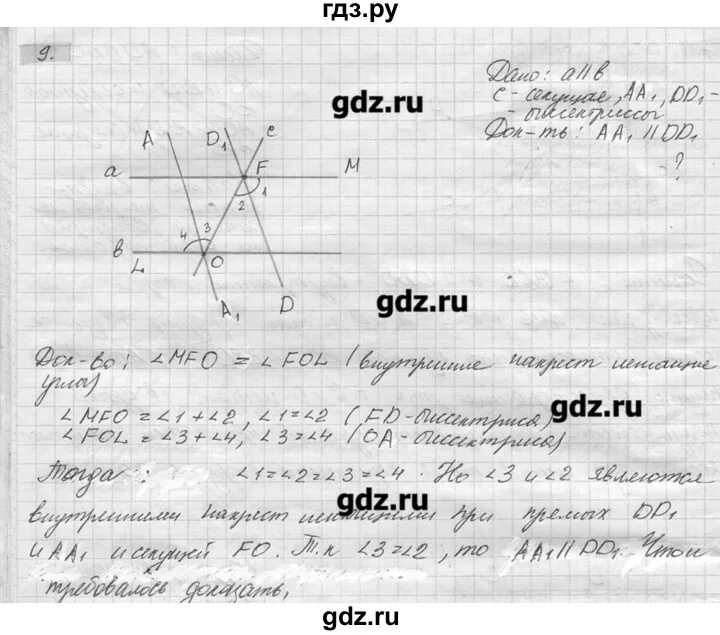 гдз.ру
9.
Дано: a||b
c - секущая, AA₁, DD₁ -
- биссектриссы
Док-ть: AA₁ || DD₁
- ?
A
D₁
c
a
F
M
1
2
3
4
b
L
O
A₁
D
gdz.ru
gdz.ru
Док-во: ∠MFO = ∠FOL (внутренние накрест лежащие
углы)
∠MFO = ∠1+∠2, ∠1=∠2 (FD-биссектриса)
∠FOL = ∠3+∠4, ∠3=∠4 (OA-биссектриса)
gdz.ru
Тогда : ∠1=∠2=∠3=∠4. Но ∠3 и ∠2 являются
gdz.ru
внутренними накрест лежащими при прямых DD₁
и AA₁ и секущей FO. Т.к ∠3=∠2, то AA₁||DD₁. Что и
требовалось доказать.
gdz.ru